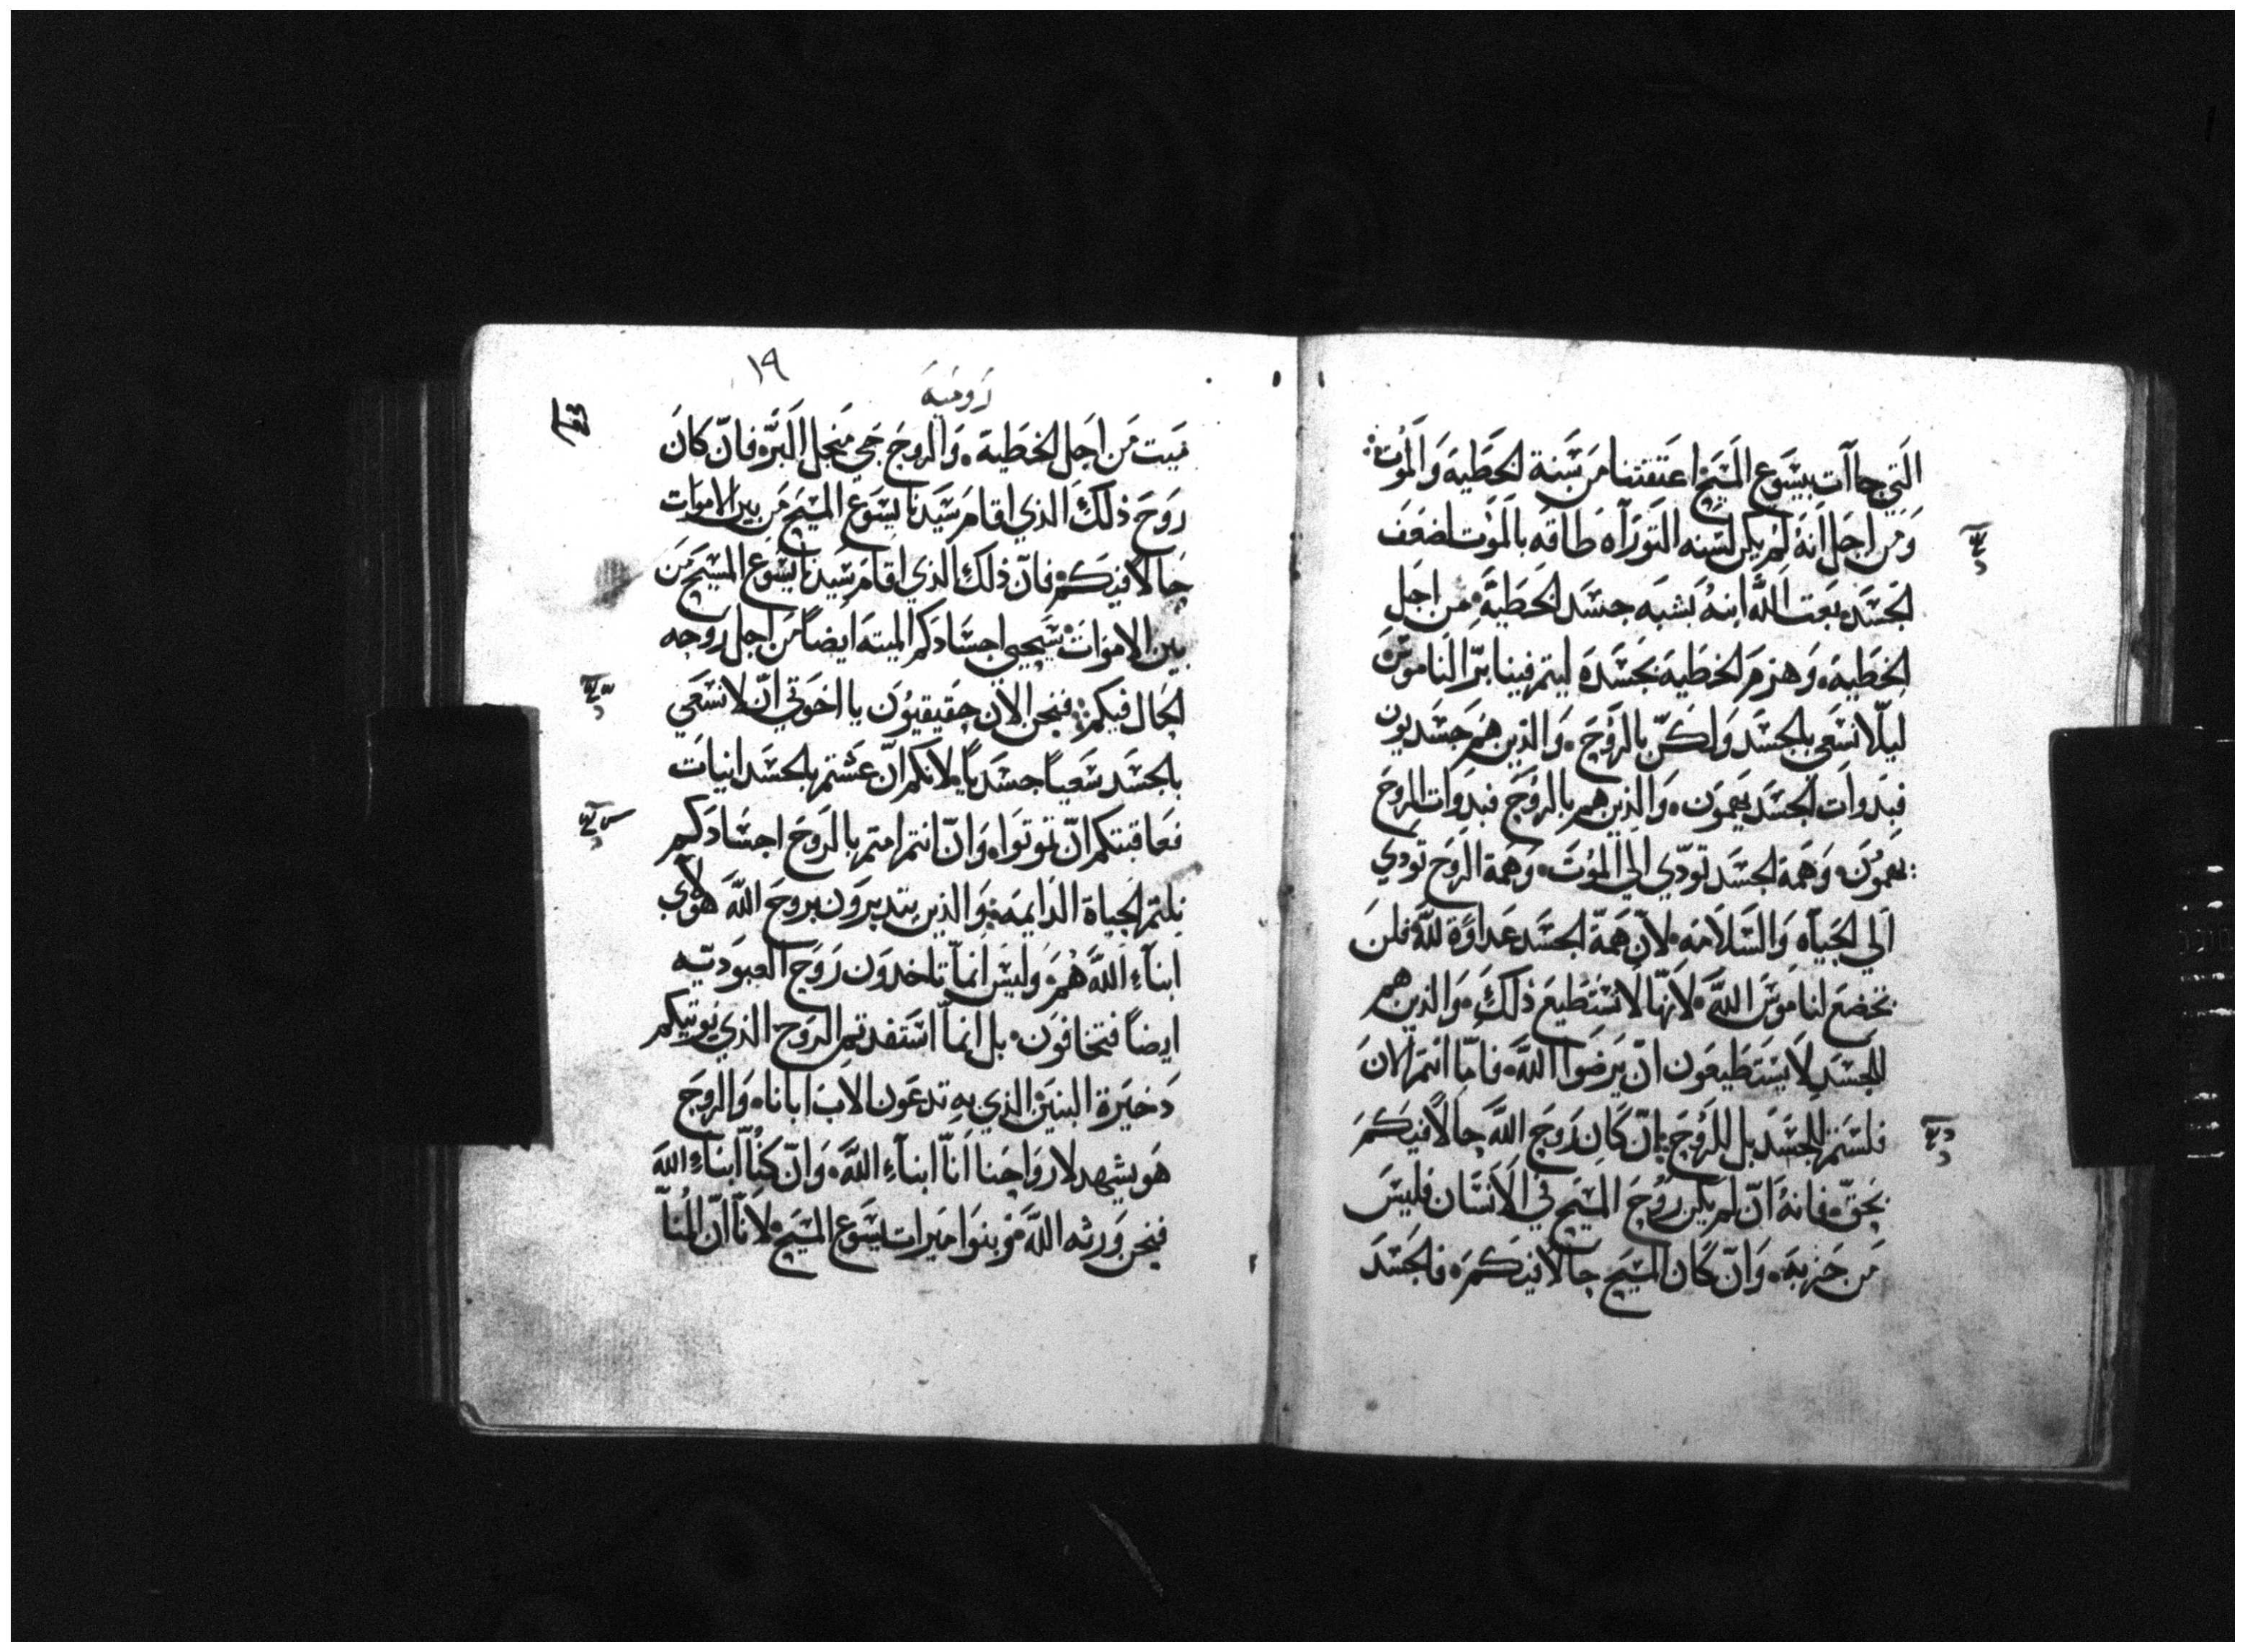 التي جاآت بيسوع المسيح اعتقتنا من سنة الخطية والموت
ومن اجل انه لم يكن لسنه التوراه طاقه بالموت لضعف
الجسد بعت الله ابنه بشبه جسد الخطية من اجل
الخطية وهزم الخطية بجسده ليتم فينا بر الناموس
ليلا نسعي بالجسد ولكن بالروح والذين هم جسديون
فبدوات الجسد يهمون والذين هم بالروح فبدوات الروح
يهمون وهمة الجسد تودي الي الموت وهمة الروح تودي
الي الحياه والسلامه لان همة الجسد عداوة لله فلن
تخضع لناموس الله لانها لا تستطيع ذلك والذين هم
للجسد لا يستطيعون ان يرضوا الله فاما انتم الان
فلستم للجسد بل للروح ان كان روح الله حالا فيكم
بحق فانه ان لم يكن روح المسيح في الانسان فليس
من حزبه وان كان المسيح حالا فيكم فالجسد
١٩
روميه
ميت من اجل الخطية والروح حي منجل البر فان كان
روح ذلك الذي اقام سيدنا يسوع المسيح من بين الاموات
حالا فيكم فان ذلك الذي اقام سيدنا يسوع المسيح من
بين الاموات سيحيي اجسادكم الميته ايضا من اجل روحه
الحال فيكم فنحن الان حقيقيون يا اخوتي ان لا نسعي
بالجسد سعيا جسديا لانكم ان عشتم بالجسدانيات
فعاقبتكم ان تموتوا وان انتم امتم بالروح اجسادكم
نلتم الحياة الدايمه والذين يتدبرون بروح الله هولاي
ابناء الله هم وليس انما تاخدون روح العبوديه
ايضا فتخافون بل انما استفدتم الروح الذي يوتيكم
دخيرة البنين الذي به تدعون الاب ابانا والروح
هو يشهد لارواحنا انا ابناء الله وان كنا ابناء الله
فنحن ورثه الله وبنوا ميرات يسوع المسيح لانا ان المنا